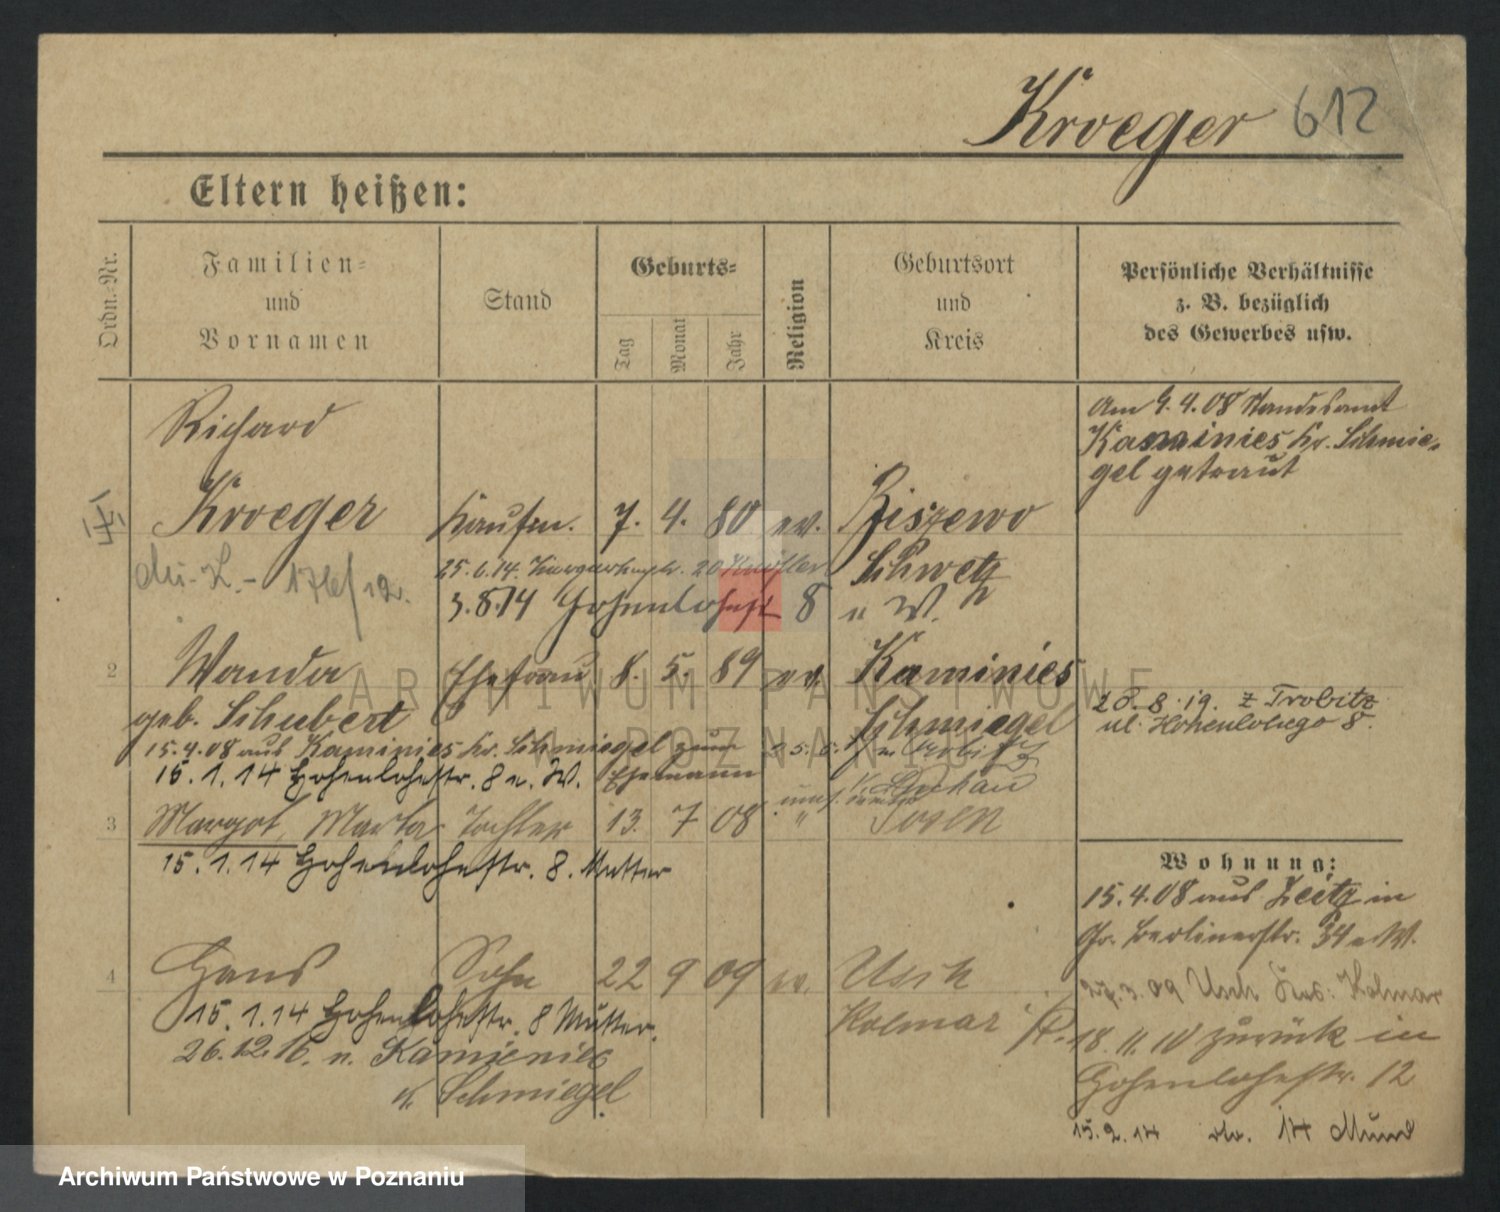 Kroeger 612
Eltern heißen:
Ordn.-Nr.
Familien-
und
Vornamen
Stand
Geburts-
Tag
Monat
Jahr
Religion
Geburtsort
und
Kreis
Persönliche Verhältnisse
z. B. bezüglich
des Gewerbes usw.
Richard
Kroeger Kaufm. 7. 4. 80 ev. Ziszewo
Schwetz
176/12.
25.6.14. 20
3.8.14 Hohenlohestr 8 u W.
Am 9.4.08 Standesamt
Kaminies Kr. Schmie-
gel getraut
2 Wanda Ehefrau 8. 5. 89 ev. Kaminies
geb. Schubert Schmiegel
15.4.08 aus Kaminies Kr. Schmiegel zum
15.1.14 Hohenlohestr. 8 u. W. Ehemann
28.8.19. z Trobitz
ul. Hohenlohego 8.
3 Margot, Marta Tochter 13. 7 08 " Posen
15.1.14 Hohenlohestr. 8. Mutter
4 Hans Sohn 22 9 09 ev. Usch
Kolmar P.
15.1.14 Hohenlohestr. 8 Mutter.
26.12.16. n. Kamienies
Kr. Schmiegel
Wohnung:
15.4.08 aus Zeitz in
Gr. Berlinerstr. 34 u W.
27.3.09 Usch Kolmar
18.11.10 zurück in
Hohenlohestr. 12
15.2.14 14
ARCHIWUM PAŃSTWOWE
W POZNANIU
Archiwum Państwowe w Poznaniu